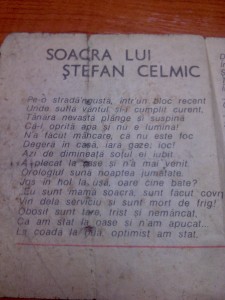 SOACRA LUI
ȘTEFAN CELMIC
Pe-o stradă îngustă, într-un bloc recent
Unde suflă vântul și-i cumplit curent,
Tânăra nevastă plânge și suspină
Că-i oprită apa și nu e lumină!
N-a făcut mâncare, că nu este foc
Degeră în casă, iară gaze, ioc!
Azi de dimineață soțul ei iubit
A plecat la gaze și n-a mai venit.
Orologiul sună noaptea jumătate
Jos în hol la ușă, oare cine bate?
„Eu sunt mamă soacră, sunt făcut
Vin dela serviciu și sunt mort de frig!
Obosit sunt tare, trist și nemâncat,
Ca am stat la oase și n-am apucat...
La coadă la ouă, optimist am stat,